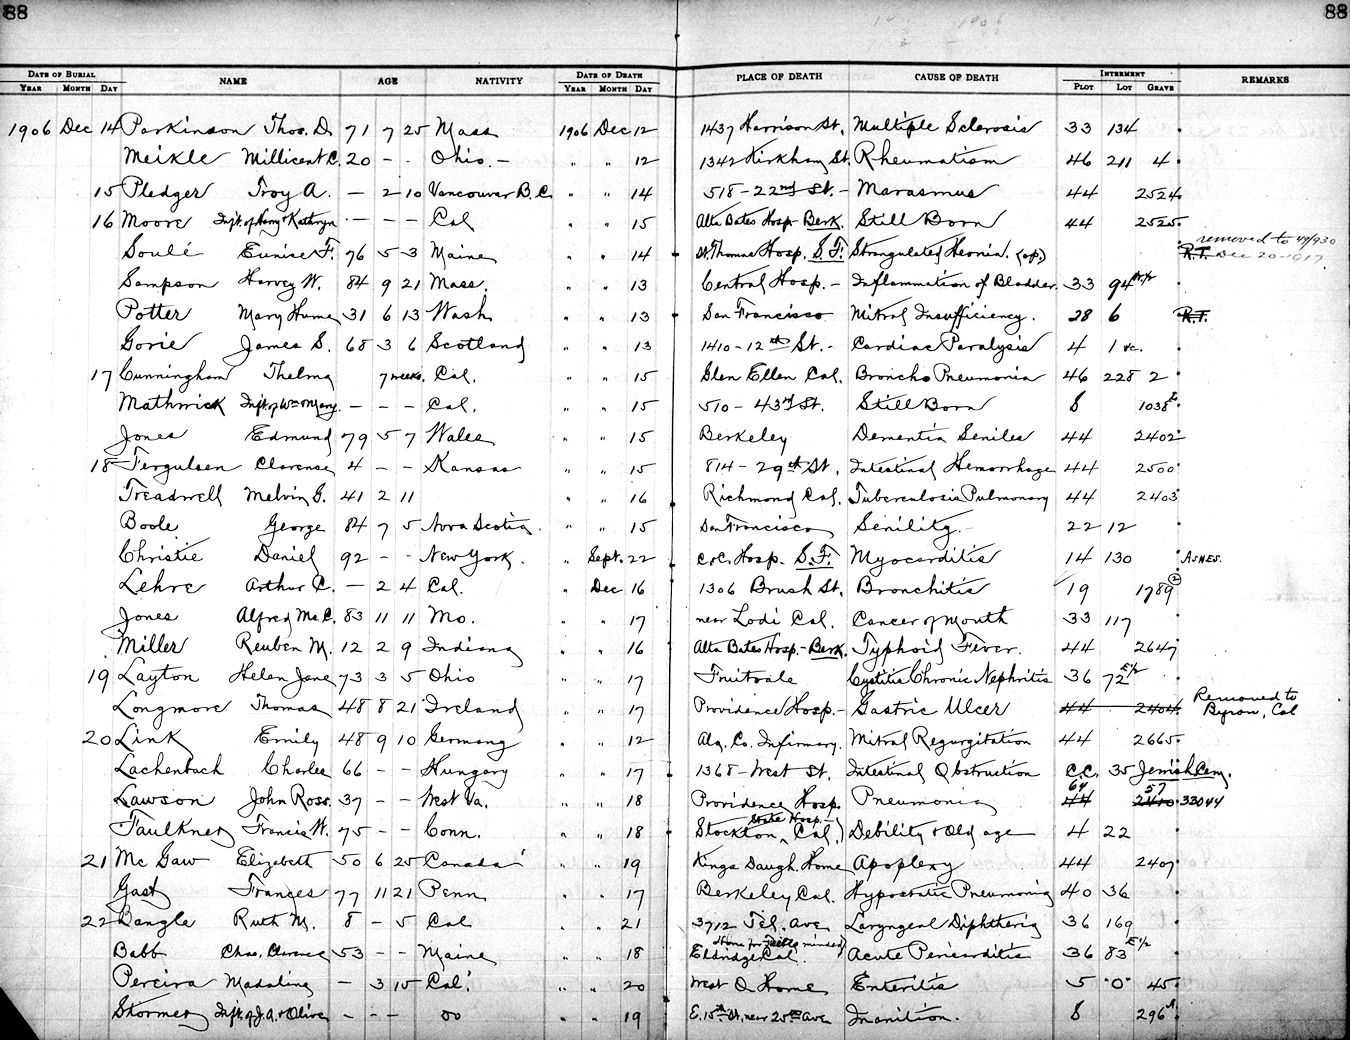 88 88
DATE OF BURIAL NAME AGE NATIVITY DATE OF DEATH PLACE OF DEATH CAUSE OF DEATH INTERMENT REMARKS
YEAR MONTH DAY YEAR MONTH DAY PLOT LOT GRAVE
1906 Dec 14 Parkinson Thos. D. 71 7 25 Mass 1906 Dec 12 1437 Harrison St. Multiple Sclerosis 33 134
Meikle Millicent C. 20 - - Ohio. - " " 12 1342 Kirkham St. Rheumatism 46 211 4
15 Pledger Troy A. - 2 10 Vancouver B.C. " " 14 518 - 22nd St. - Marasmus 44 2524
16 Moore Inft. of Harry & Kathryn - - - Cal " " 15 Alta Bates Hosp. Berk. Still Born 44 2525
removed to 49/930
Soulé Eunise F. 76 5 3 Maine " " 14 St. Thomas Hosp. S.F. Strangulated Hernia. (op.) R.T. Dec 20-1917
Sampson Harvey W. 84 9 21 Mass. " " 13 Central Hosp. - Inflammation of Bladder. 33 94
Potter Mary Hume 31 6 13 Wash " " 13 San Francisco Mitral Insufficiency. 28 6 R.T.
Gorie James S. 68 3 6 Scotland " " 13 1410 - 12th St. - Cardiac Paralysis 4 1
17 Cunningham Thelma 7 weeks. Cal. " " 15 Glen Ellen Cal. Broncho Pneumonia 46 228 2
Mathwick Inft. of Wm & Mary. - - - Cal. " " 15 510 - 43rd St. Still Born 8 1038
Jones Edmund 79 5 7 Wales " " 15 Berkeley Dementia Seniles 44 2402
18 Fergulsen Clarense 4 - - Kansas " " 15 814 - 29th St. Intestinal Hemorrhage 44 2500
Treadwell Melvin G. 41 2 11 " " 16 Richmond Cal. Tuberculosis Pulmonary 44 2403
Boole George 84 7 5 Nova Scotia " " 15 San Francisco Senility. - 22 12
Christie Daniel 92 - - New York. " Sept. 22 C. & C. Hosp. S.F. Myocarditis 14 130 ASHES.
Lehre Arthur C. - 2 4 Cal. " Dec 16 1306 Brush St. Bronchitis 19 1789 (2)
Jones Alfred Mc.C. 83 11 11 Mo. " " 17 near Lodi Cal. Cancer of Mouth 33 117
Miller Reuben M. 12 2 9 Indiana " " 16 Alta Bates Hosp. - Berk. Typhoid Fever. 44 2647
19 Layton Helen Jane 73 3 5 Ohio " " 17 Fruitvale Cystitis Chronic Nephritis 36 72 E 1/2
Removed to
Longmore Thomas 48 8 21 Ireland " " 17 Providence Hosp. - Gastric Ulcer 44 2404 Byron, Cal
20 Link Emily 48 9 10 Germany " " 12 Ala. Co. Infirmary. Mitral Regurgitation 44 2665
Lachenbach Charles 66 - - Hungary " " 17 1368 - West St. Intestinal Obstruction C.C. 35 Jewish Cem.
64 57
Lawson John Ross. 37 - - West Va. " " 18 Providence Hosp. Pneumonia 44 2410 33044
State Hosp. -
Faulkner Francis W. 75 - - Conn. " " 18 Stockton, Cal) Debility & Old age 4 22
21 Mc Gaw Elizabeth 50 6 25 Canada " " 19 Kings Daugh. Home Apoplexy 44 2407
Gast Frances 77 11 21 Penn " " 17 Berkeley Cal. Hypostatic Pneumonia 40 36
22 Bangle Ruth M. 8 - 5 Cal " " 21 3712 Tel. Ave Laryngeal Diphtheria 36 169
Home for Feeble minded)
Babb Chas. Clarence 53 - - Maine " " 18 Eldridge Cal. Acute Pericarditis 36 83 E 1/2
Pereira Madaline - 3 15 Cal. " " 20 West O. Home Enteritis 5 "0" 45
Stormer Inft. of J.A. & Olive - - - oo " " 19 E. 15th St. near 25th Ave Inanition. 8 296 A